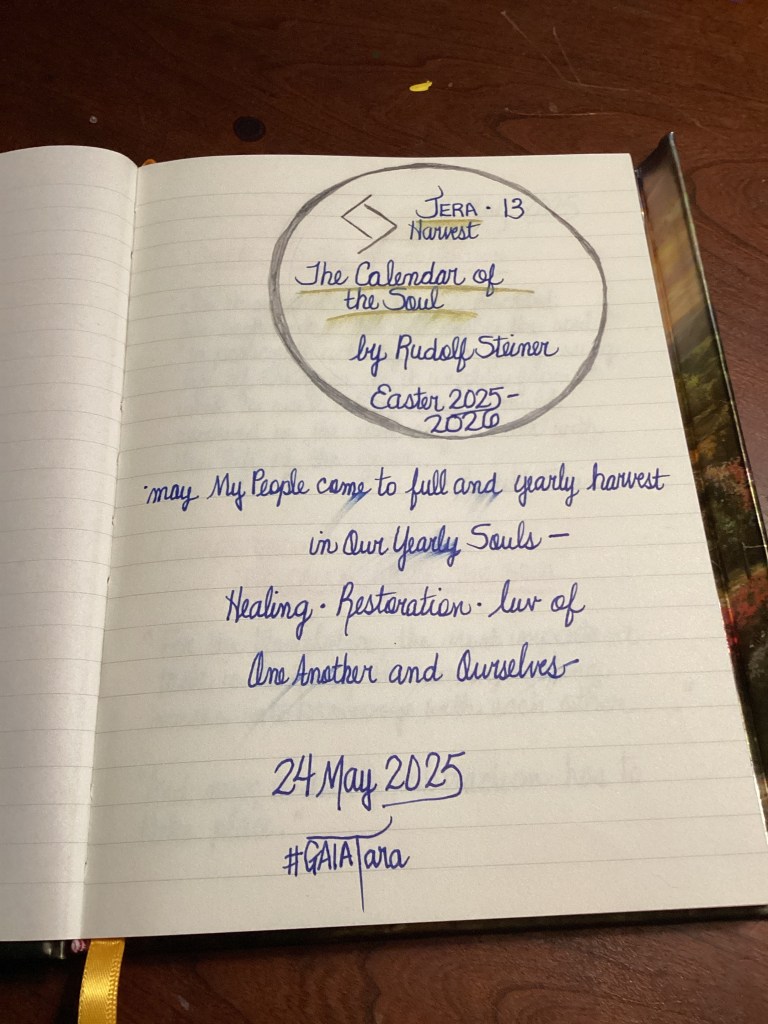 JERA · 13
Harvest
The Calendar of
the Soul
by Rudolf Steiner
Easter 2025-
2026
·may My People come to full and yearly harvest
in Our Yearly Souls —
Healing · Restoration · luv of
One Another and Ourselves-
24 May 2025
#GAIATara